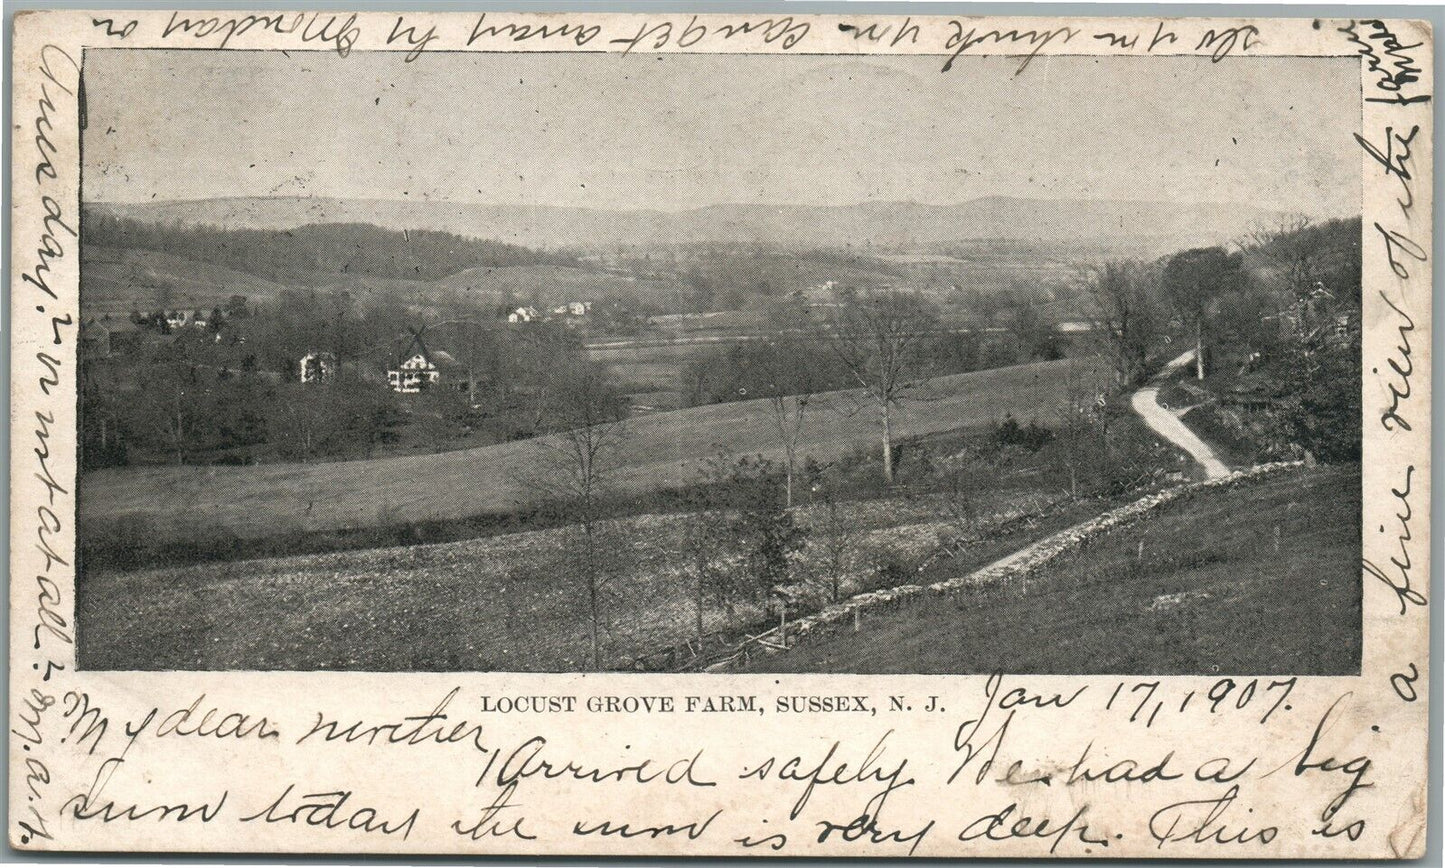 LOCUST GROVE FARM, SUSSEX, N. J. Jan 17, 1907.
My dear mother, Arrived safely. We had a big
snow today the snow is very deep. This is
a fine view of the
Do you think you can get away by Monday or
Tuesday, or not at all? -